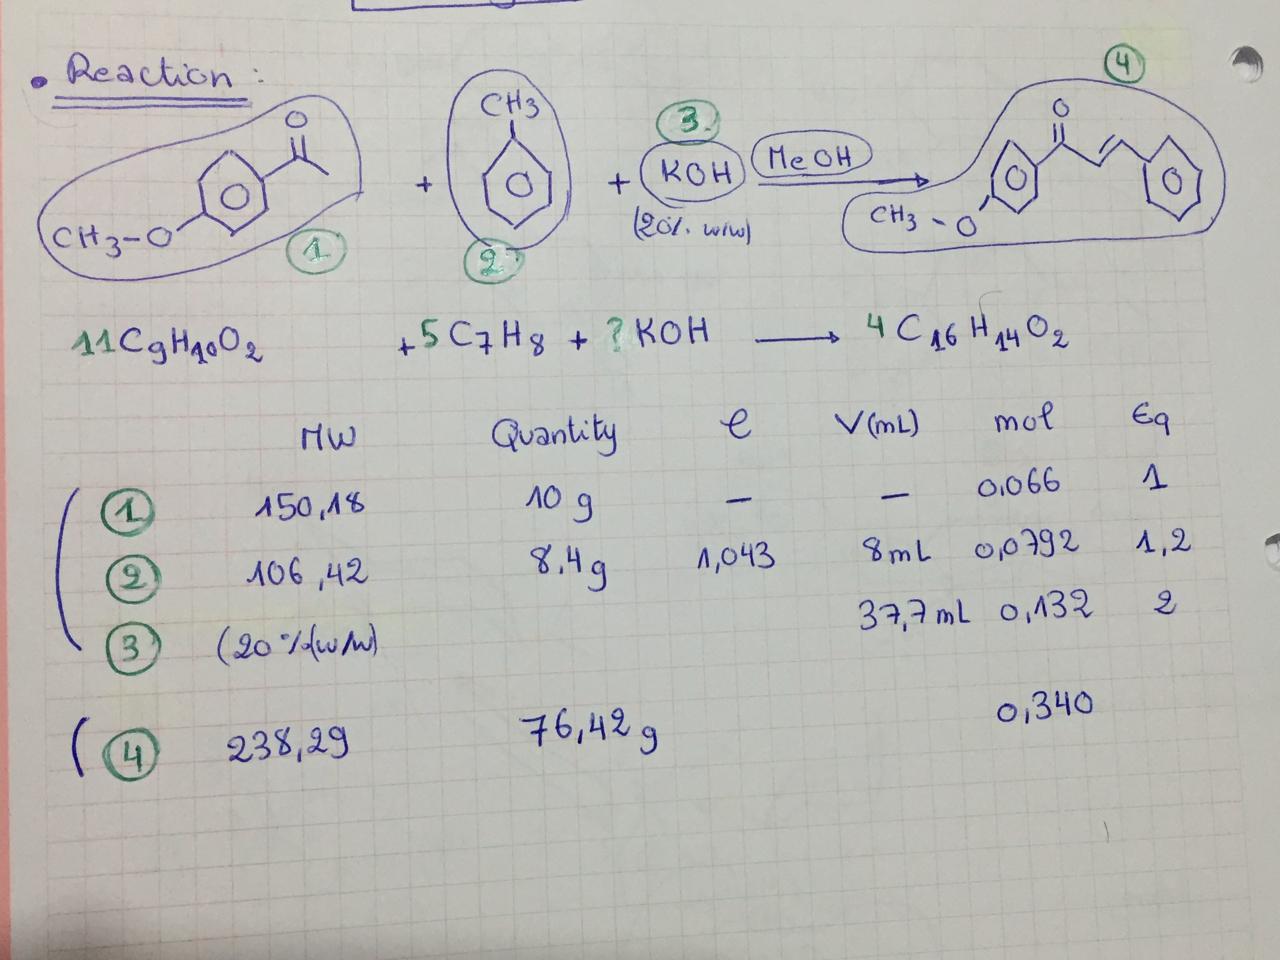 • Reaction :
④
O
CH3
3.
O
+
+ KOH
MeOH
(20% w/w)
CH3-O
CH3-O
1
2
11C9H10O2 +5 C7H8 + ? KOH → 4 C16H14O2
MW Quantity ρ V(mL) mol Eq
① 150,18 10 g — — 0,066 1
② 106,42 8,4g 1,043 8mL 0,0792 1,2
③ (20%(w/w) 37,7mL 0,132 2
④ 238,29 76,42g 0,340